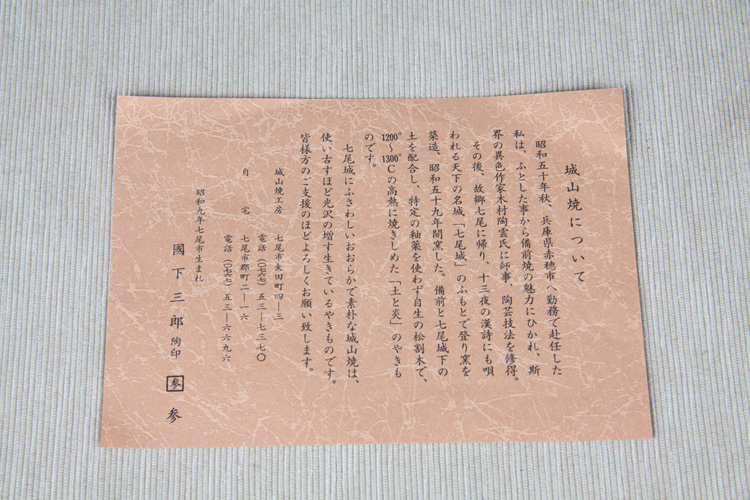 城山焼について
昭和五十年秋、兵庫県赤穂市へ勤務で赴任した
私は、ふとした事から備前焼の魅力にひかれ、斯
界の異色作家木村陶雲氏に師事、陶芸技法を修得。
その後、故郷七尾に帰り、十三夜の漢詩にも唄
われる天下の名城「七尾城」のふもとで登り窯を
築造、昭和五十九年開窯した。備前と七尾城下の
土を配合し、特定の釉薬を使わず自生の松割木で、
1200°〜1300°Cの高熱に焼きしめた「土と炎」のやきも
のです。
七尾城にふさわしいおおらかで素朴な城山焼は、
使い古すほど光沢の増す生きているやきものです。
皆様方のご支援のほどよろしくお願い致します。
城山焼工房 七尾市矢田町四―三
電話(〇七六七)五三―七三七〇
自宅 七尾市郡町二―一六
電話(〇七六七)五三―六六九六
昭和九年七尾市生まれ
國下三郎 陶印 参 参